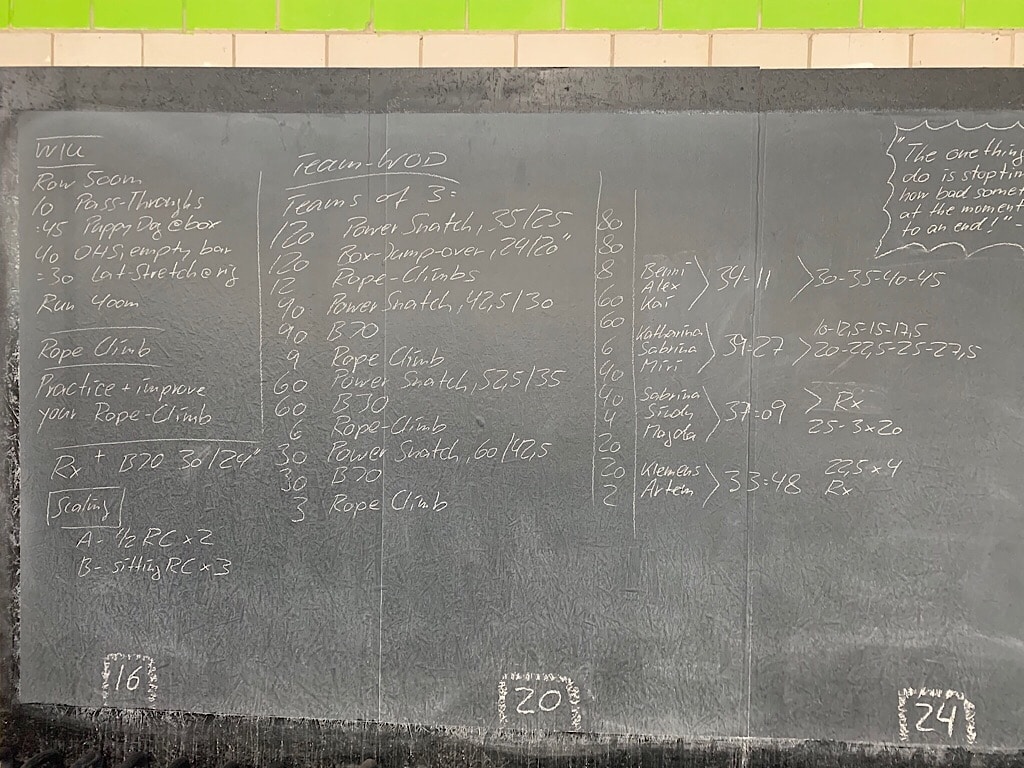 WU
Row 500m
10 Pass-Throughs
:45 Puppy Dog @ box
40 OHS, empty bar
:30 Lat-Stretch @ rig
Run 400m
Rope Climb
Practice + improve
your Rope-Climb
Rx+ BJO 30/24"
Scaling
A- 1/2 RC x 2
B- sitting RC x 3
Team-WOD
Teams of 3:
120 Power Snatch, 35/25
120 Box-Jump-over, 24/20"
12 Rope-Climbs
90 Power Snatch, 42,5/30
90 BJO
9 Rope Climb
60 Power Snatch, 52,5/35
60 BJO
6 Rope-Climb
30 Power Snatch, 60/42,5
30 BJO
3 Rope Climb
80
80
8
60
60
6
40
40
4
20
20
2
Benni
Alex
Kai
34:11
30-35-40-45
Katharina
Sabrina
Miri
39:27
10-12,5-15-17,5
20-22,5-25-27,5
Sabrina
Sindy
Magda
37:09
Rx
25-3x20
Klemens
Artem
33:48
22,5x4
Rx
"The one thing
do is stop tin
how bad somet
at the moment
to an end!" -
16
20
24